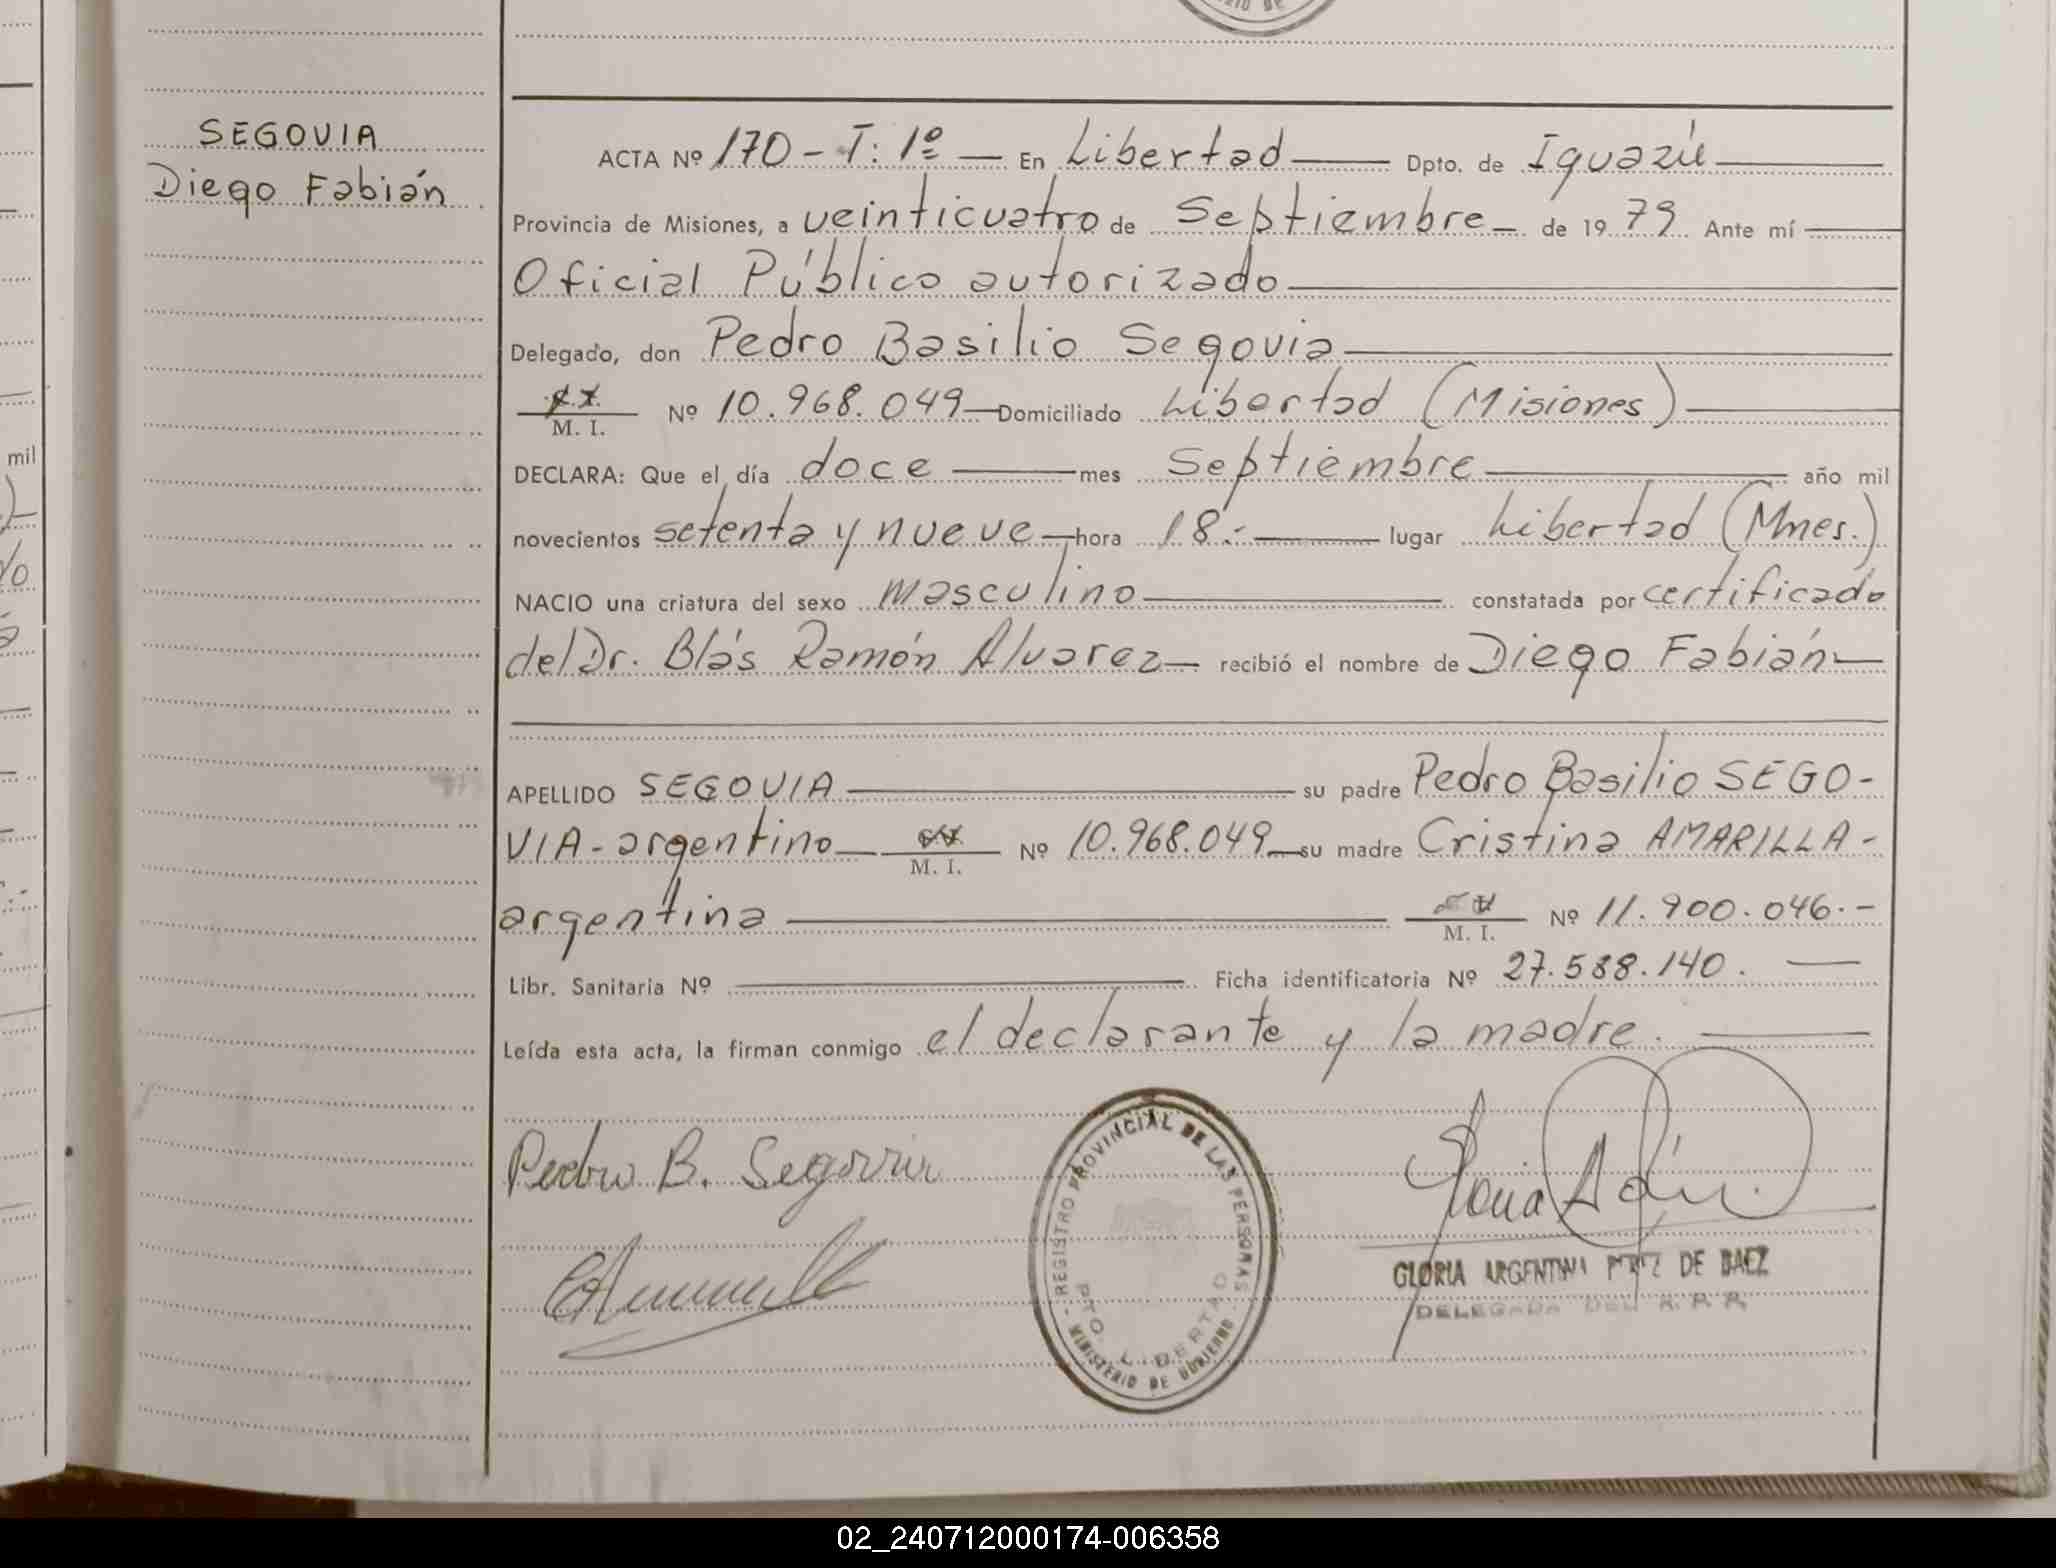 SEGOVIA
Diego Fabián
ACTA Nº 170 - T: 1º — En Libertad — Dpto. de Iguazú —
Provincia de Misiones, a veinticuatro de Septiembre — de 1979 Ante mí —
Oficial Público autorizado —
Delegado, don Pedro Basilio Segovia —
M. I. Nº 10.968.049 — Domiciliado Libertad (Misiones) —
DECLARA: Que el día doce — mes Septiembre — año mil
novecientos setenta y nueve — hora 18.- — lugar Libertad (Mnes.)
NACIO una criatura del sexo masculino — constatada por certificado
del Dr. Blás Ramón Alvarez — recibió el nombre de Diego Fabián —
APELLIDO SEGOVIA — su padre Pedro Basilio SEGO-
VIA - argentino — M. I. Nº 10.968.049 — su madre Cristina AMARILLA -
argentina — M. I. Nº 11.900.046.-
Libr. Sanitaria Nº — Ficha identificatoria Nº 27.588.140. —
Leída esta acta, la firman conmigo el declarante y la madre. —
Pedro B. Segovia
REGISTRO PROVINCIAL DE LAS PERSONAS
PTO. LIBERTAD
MINISTERIO DE GOBIERNO
GLORIA ARGENTINA PEREZ DE BAEZ
DELEGADA DEL R. P. P.
mil
02_240712000174-006358